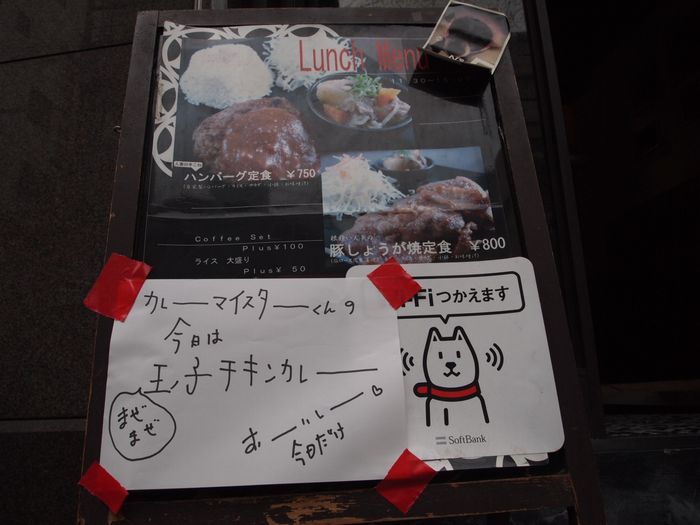 Lunch Menu
11:30～
ハンバーグ定食 ￥750
豚しょうが焼定食 ￥800
Coffee Set
Plus¥100
ライス 大盛り
Plus¥ 50
カレーマイスターくんの
今日は
玉子チキンカレー
まぜ
まぜ
おーいしー♡
今日だけ
Fiつかえます
SoftBank